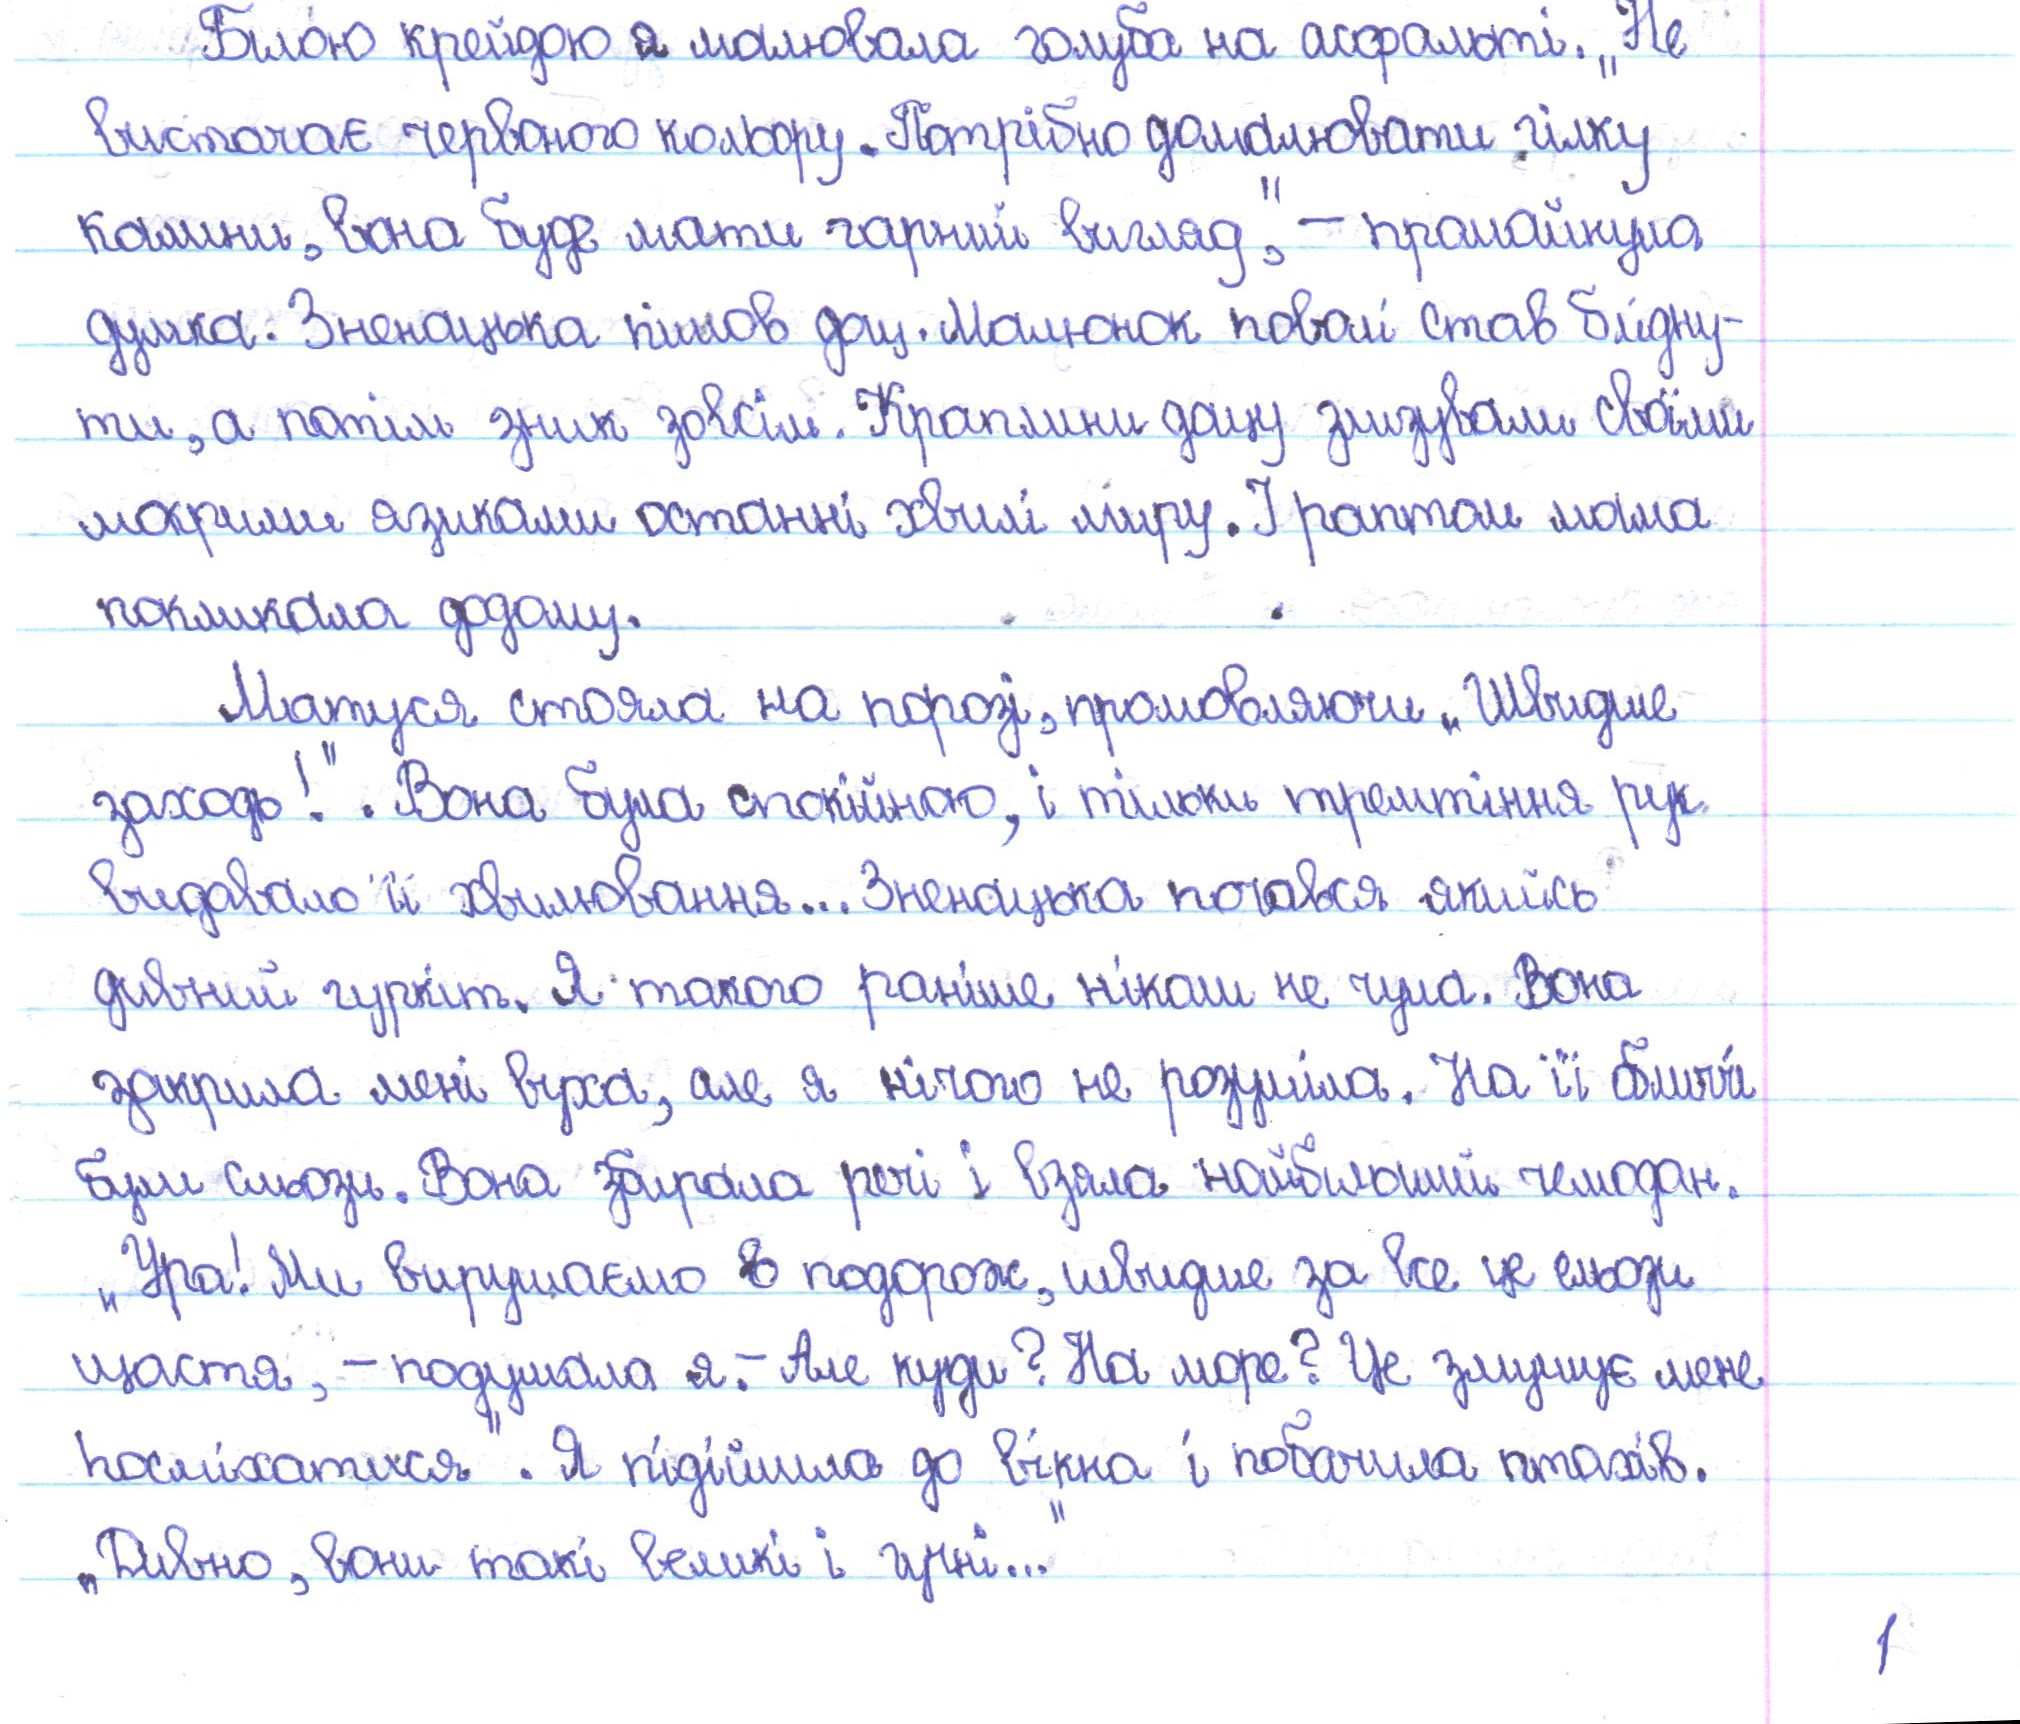 Білою крейдою я малювала голуба на асфальті. „Не
вистачає червоного кольору. Потрібно домалювати гілку
калини, вона буде мати гарний вигляд", – промайнула
думка. Зненацька пішов дощ. Малюнок поволі став блідну-
ти, а потім зник зовсім. Краплини дощу злизували своїми
мокрими язиками останні хвилі миру. І раптом мама
покликала додому.
Матуся стояла на порозі, промовляючи „Швидше
заходь!". Вона була спокійною, і тільки тремтіння рук
видавало її хвилювання... Зненацька почався якийсь
дивний гуркіт. Я такого раніше ніколи не чула. Вона
закрила мені вуха, але я нічого не розуміла. На її обличчі
були сльози. Вона збирала речі і взяла найбільший чемодан.
„Ура! Ми вирушаємо в подорож, швидше за все це сльози
щастя, – подумала я. – Але куди? На море? Це змушує мене
посміхатися". Я підійшла до вікна і побачила птахів.
„Дивно, вони такі великі і гучні..."
1